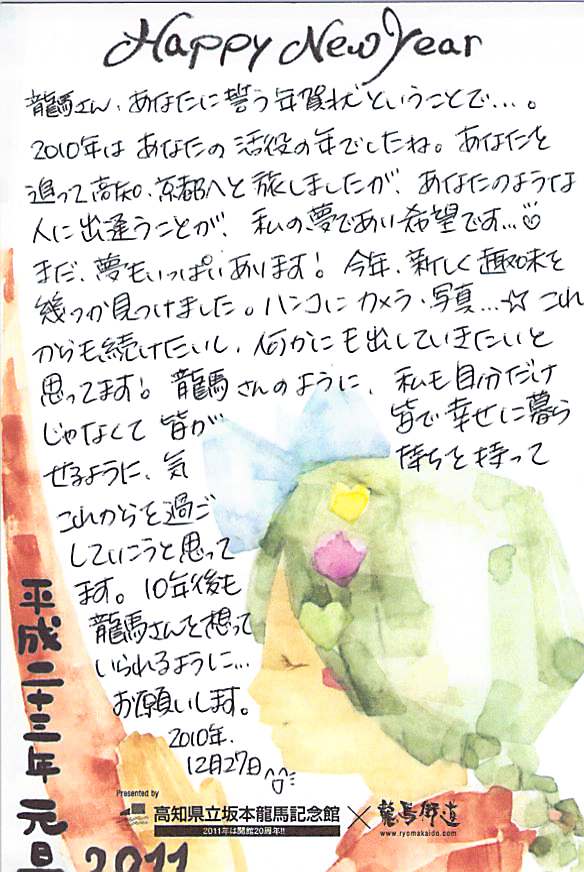 Happy New Year
龍馬さん、あなたに誓う年賀状ということで…。
2010年は あなたの活役の年でしたね。あなたを
追って高知、京都へと旅しましたが、あなたのような
人に出逢うことが、私の夢であい希望です…
まだ、夢もいっぱいあります！今年、新しく趣味を
幾つか見つけました。ハンコにカメラ・写真…☆これ
からも続けたいし、何かにも出していきたいと
思ってます！龍馬さんのように、私も自分だけ
じゃなくて 皆が 皆で幸せに暮ら
せるように、気 持ちを持って
これからを過ご
していこうと思って
ます。10年後も
龍馬さんを想って
いられるように…
お願いします。
2010年.
12月27日
平成二十三年 元旦
2011
Presented by
高知県立坂本龍馬記念館
2011年は開館20周年!!
×
龍馬街道
www.ryomakaido.com